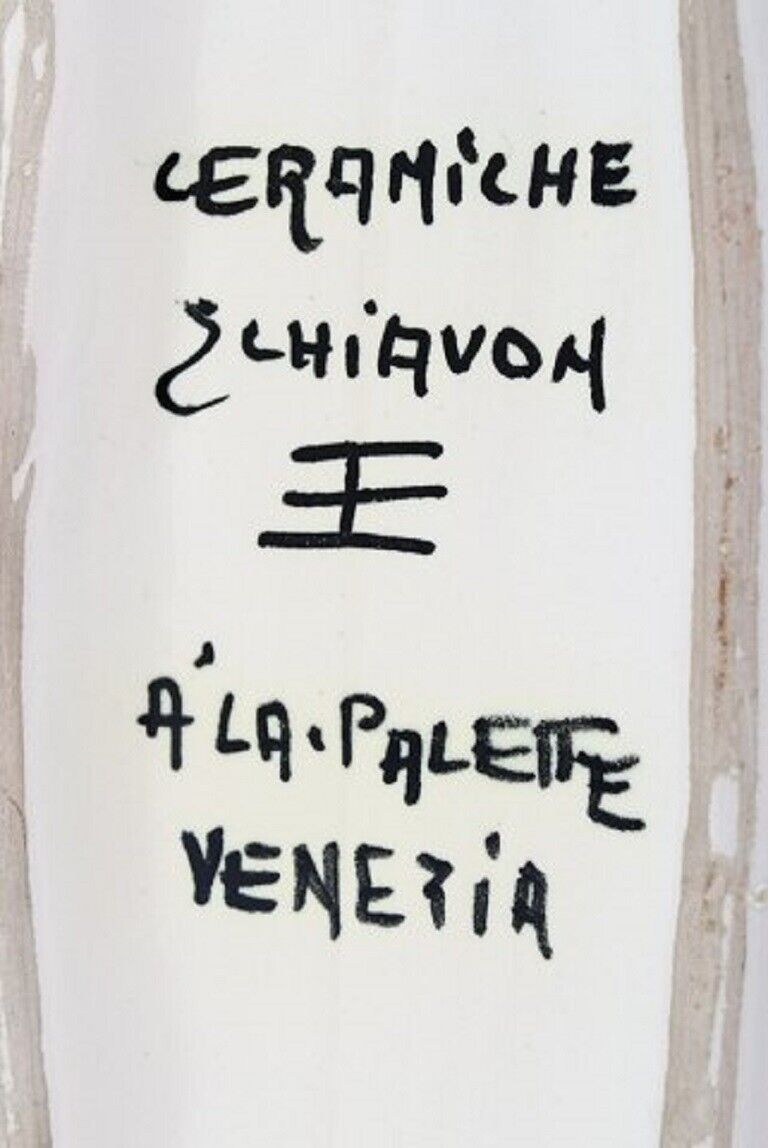 CERAMiCHE
SCHiAVON
A' LA·PALETTE
VENEZiA